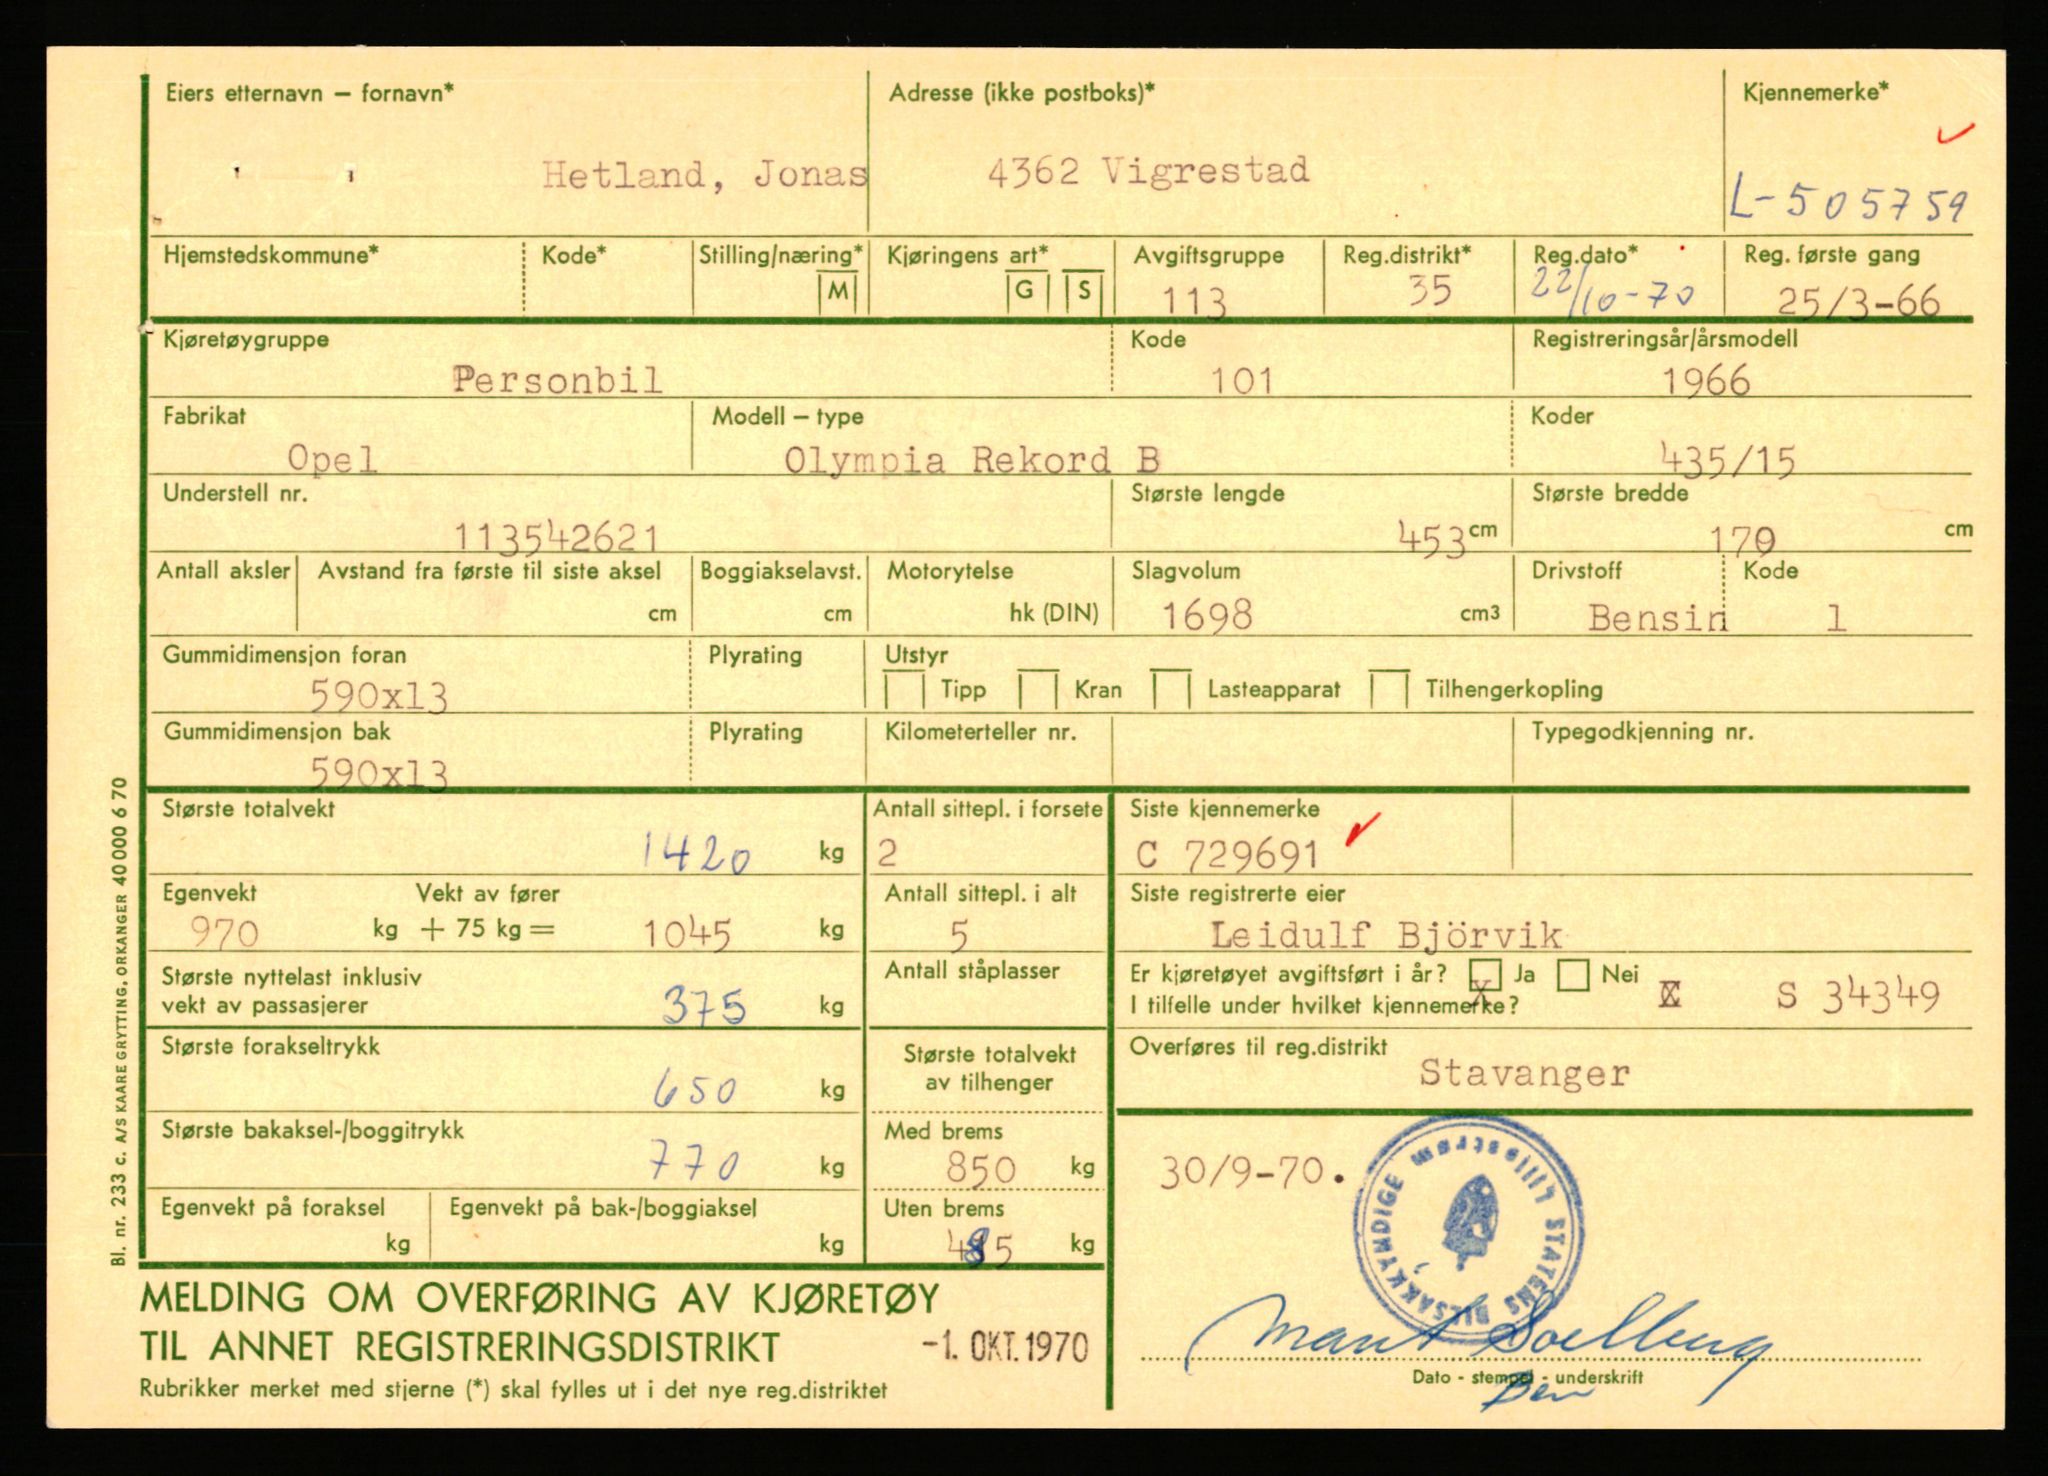 Eiers etternavn – fornavn* Adresse (ikke postboks)* Kjennemerke*
Hetland, Jonas 4362 Vigrestad L-505759
Hjemstedskommune* Kode* Stilling/næring* Kjøringens art* Avgiftsgruppe Reg.distrikt* Reg.dato* Reg. første gang
M G S 113 35 22/10-70 25/3-66
Kjøretøygruppe Kode Registreringsår/årsmodell
Personbil 101 1966
Fabrikat Modell – type Koder
Opel Olympia Rekord B 435/15
Understell nr. Største lengde Største bredde
113542621 453 cm 170 cm
Antall aksler Avstand fra første til siste aksel Boggiakselavst. Motorytelse Slagvolum Drivstoff Kode
cm cm hk (DIN) 1698 cm3 Bensin 1
Gummidimensjon foran Plyrating Utstyr
590x13 Tipp Kran Lasteapparat Tilhengerkopling
Gummidimensjon bak Plyrating Kilometerteller nr. Typegodkjenning nr.
590x13
Største totalvekt Antall sittepl. i forsete Siste kjennemerke
1420 kg 2 C 729691
Egenvekt Vekt av fører Antall sittepl. i alt Siste registrerte eier
970 kg + 75 kg = 1045 kg 5 Leidulf Björvik
Største nyttelast inklusiv Antall ståplasser Er kjøretøyet avgiftsført i år? Ja Nei
vekt av passasjerer 375 kg I tilfelle under hvilket kjennemerke? X S 34349
Største forakseltrykk Største totalvekt Overføres til reg.distrikt
650 kg av tilhenger Stavanger
Største bakaksel-/boggitrykk Med brems
770 kg 850 kg 30/9-70.
Egenvekt på foraksel Egenvekt på bak-/boggiaksel Uten brems
kg kg 485 kg
STATENS BILSAKKYNDIGE Lillestrøm
MELDING OM OVERFØRING AV KJØRETØY
TIL ANNET REGISTRERINGSDISTRIKT -1. OKT. 1970
Dato - stempel - underskrift
Rubrikker merket med stjerne (*) skal fylles ut i det nye reg.distriktet
Bl. nr. 233 c. A/S KAARE GRYTTING, ORKANGER 40 000 6 70